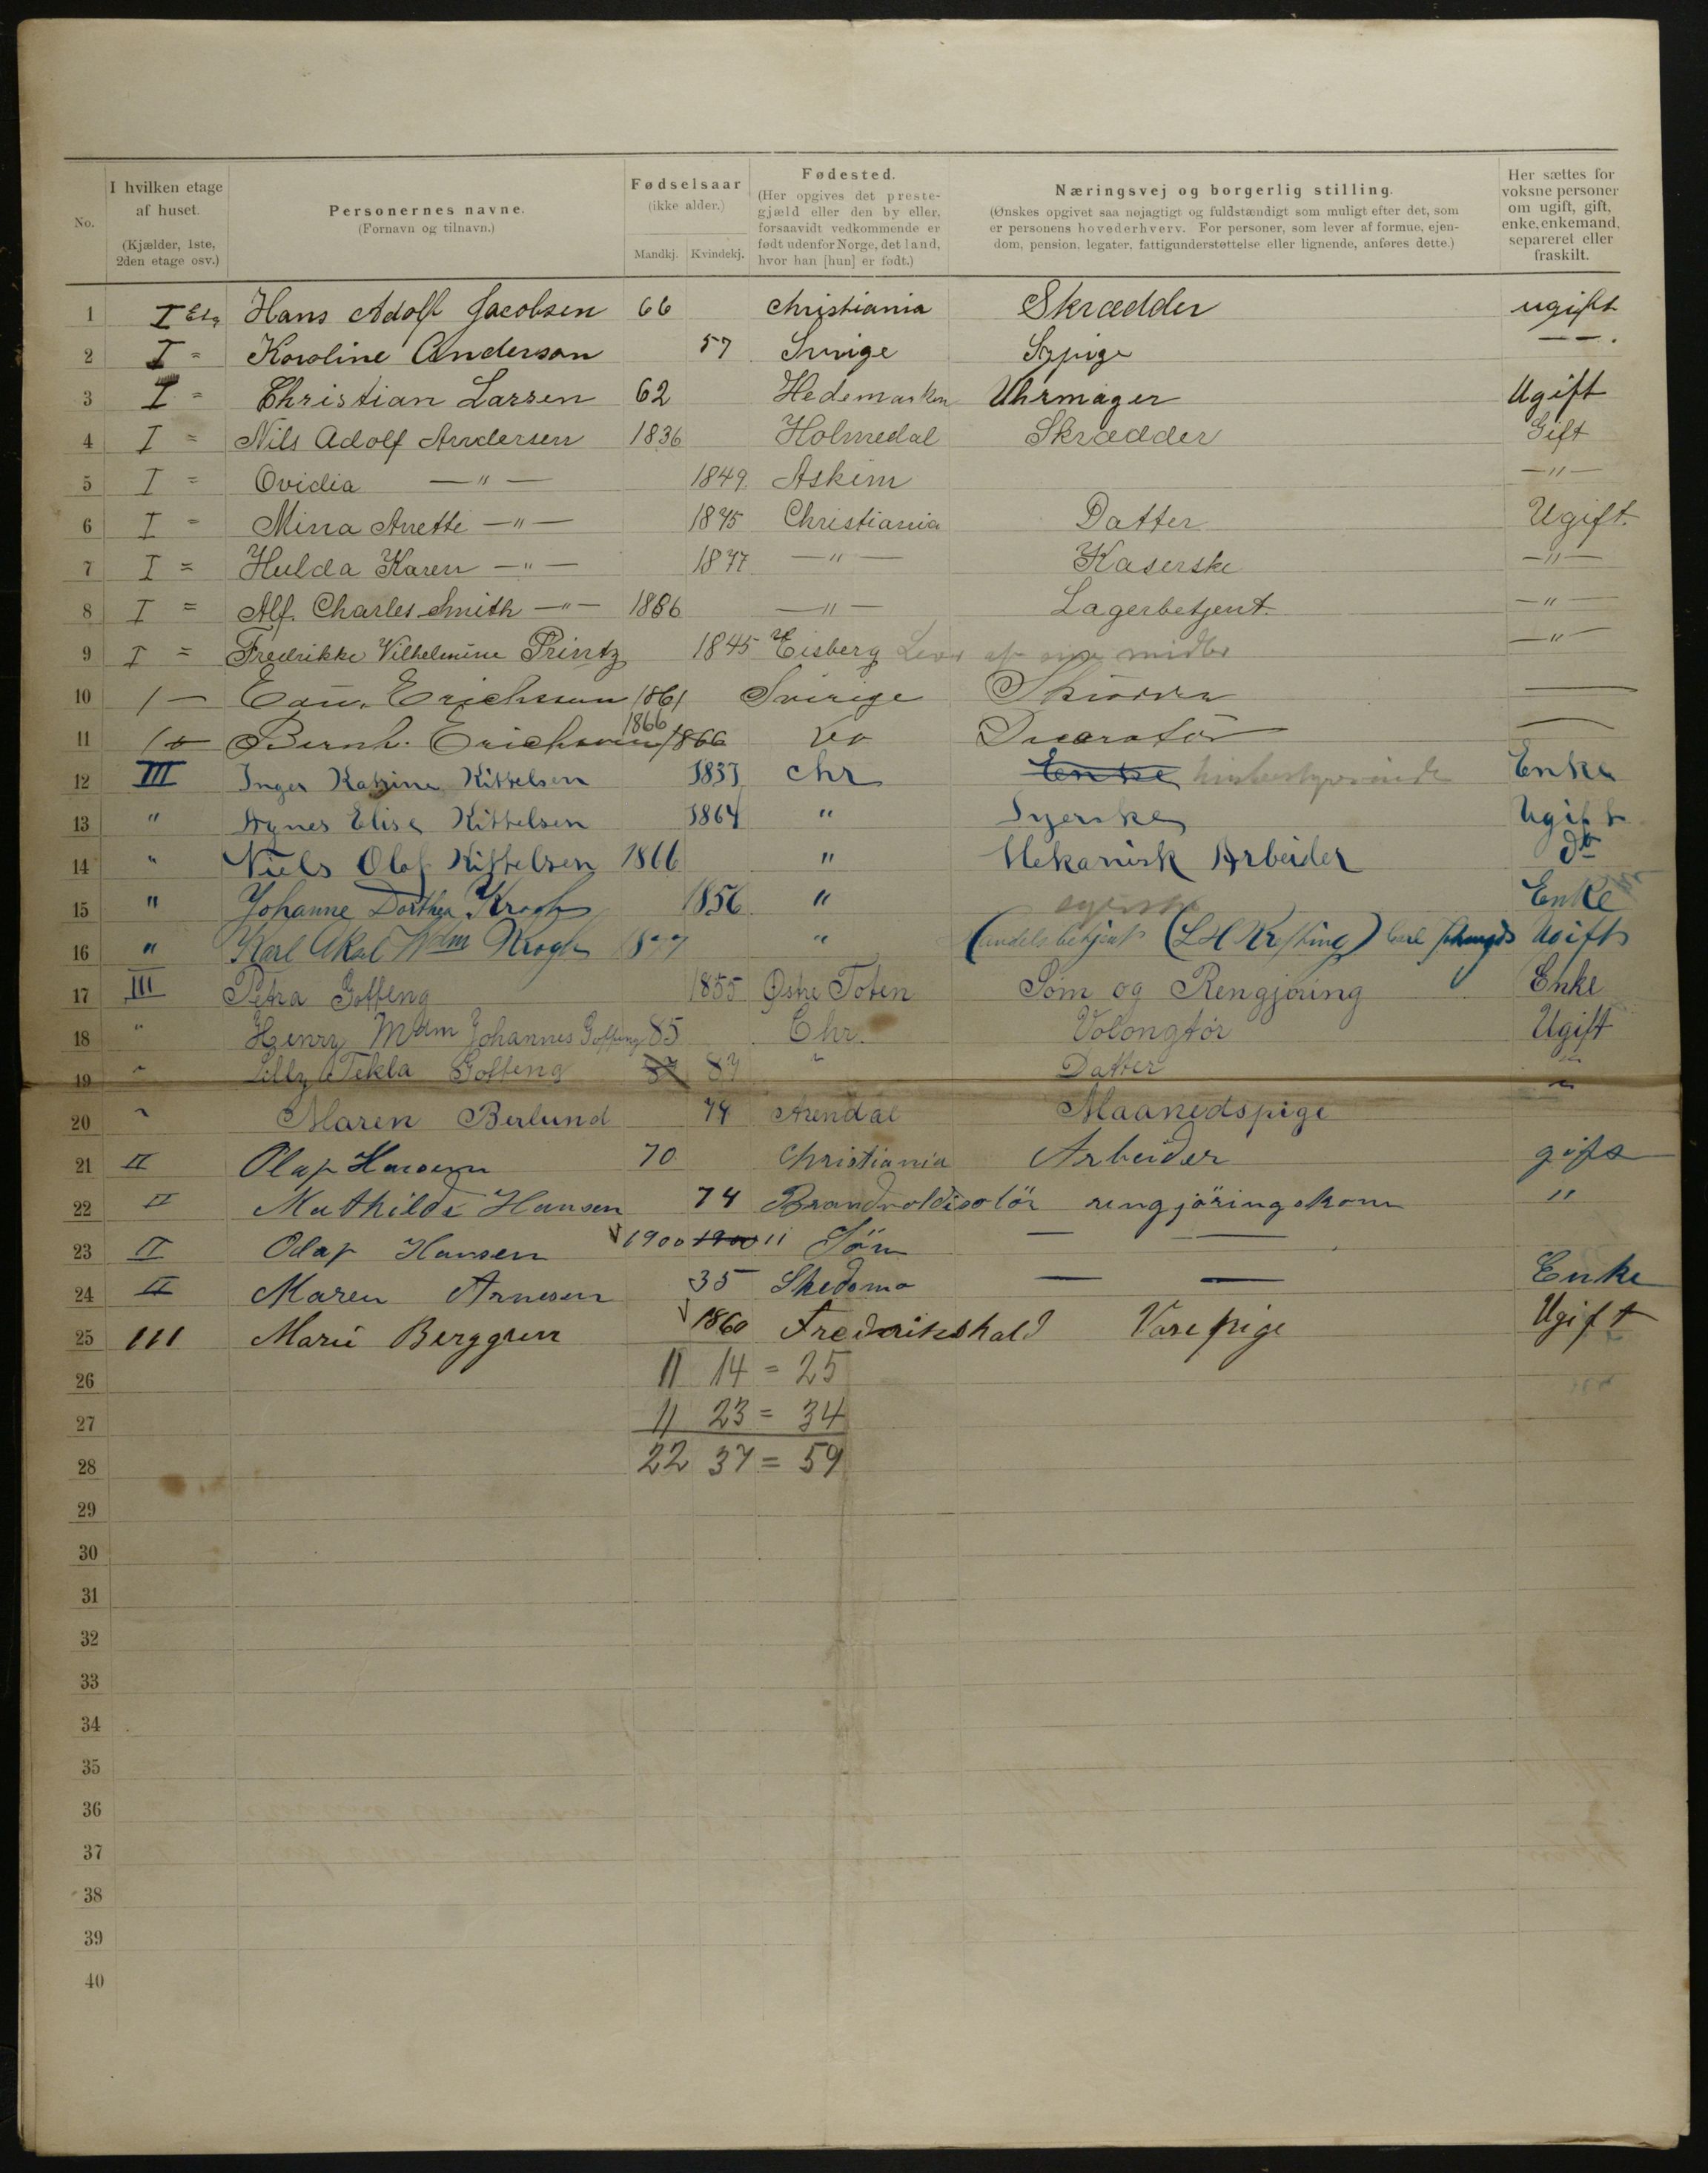 No.
I hvilken etage af huset. (Kjælder, 1ste, 2den etage osv.)
Personernes navne. (Fornavn og tilnavn.)
Fødselsaar (ikke alder.) Mandkj. Kvindekj.
Fødested. (Her opgives det prestegjæld eller den by eller, forsaavidt vedkommende er født udenfor Norge, det land, hvor han [hun] er født.)
Næringsvej og borgerlig stilling. (Ønskes opgivet saa nøjagtigt og fuldstændigt som muligt efter det, som er personens hovederhverv. For personer, som lever af formue, ejendom, pension, legater, fattigunderstøttelse eller lignende, anføres dette.)
Her sættes for voksne personer om ugift, gift, enke, enkemand, separeret eller fraskilt.
1 I Etg Hans Adolf Jacobsen 66 Christiania Skrædder ugift
2 I = Karoline Anderson 57 Sverige Sypige — — .
3 I = Christian Larsen 62 Hedemarken Uhrmager Ugift
4 I = Nils Adolf Andersen 1836 Holmedal Skrædder Gift
5 I = Ovidia —"— 1849 Askim —"—
6 I = Minna Anette —"— 1875 Christiania Datter Ugift.
7 I = Hulda Karen —"— 1877 —"— Kaserske —"—
8 I = Alf. Charles Smith —"— 1886 —"— Lagerbetjent. —"—
9 I = Fredrikke Vilhelmine Printz 1845 Eisberg Lever af sine midler —"—
10 1 — Erichsson 1861 Sverige —
11 Bernh. Erichsson 1866 1866 Do Decoratør —
12 III Inger Katrine Kittelsen 1837 Chr Enke husbestyrerinde Enke
13 " Agnes Elise Kittelsen 1864 " Syerske Ugift
14 " Niels Olaf Kittelsen 1866 " Mekanisk Arbeider do
15 " Johanne Dorthea Krogh 1856 " syerske Enke
16 " Karl Aksel Wilm Krogh 1877 " Handelsbetjent Ugift
17 III Petra Goffeng 1855 Østre Toten Søm og Rengjøring Enke
18 " Henry Johannes Goffeng 85 Chr. Volongtør Ugift
19 " Lilly Tekla Goffeng 87 87 " Datter "
20 " Maren Berlund 74 Arendal Maanedspige "
21 II Olaf Hansen 70 Christiania Arbeider gift
22 II Mathilde Hansen 74 Brandvoldisolör rengjöringskone "
23 II Olaf Hansen 1900 1900 11 Sön — —
24 II Maren Arnesen 35 Skedsmo — — Enke
25 III Marie Berggren 1860 Fredrikshald Varepige Ugift
26 11 14 = 25
27 11 23 = 34
28 22 37 = 59
29
30
31
32
33
34
35
36
37
38
39
40